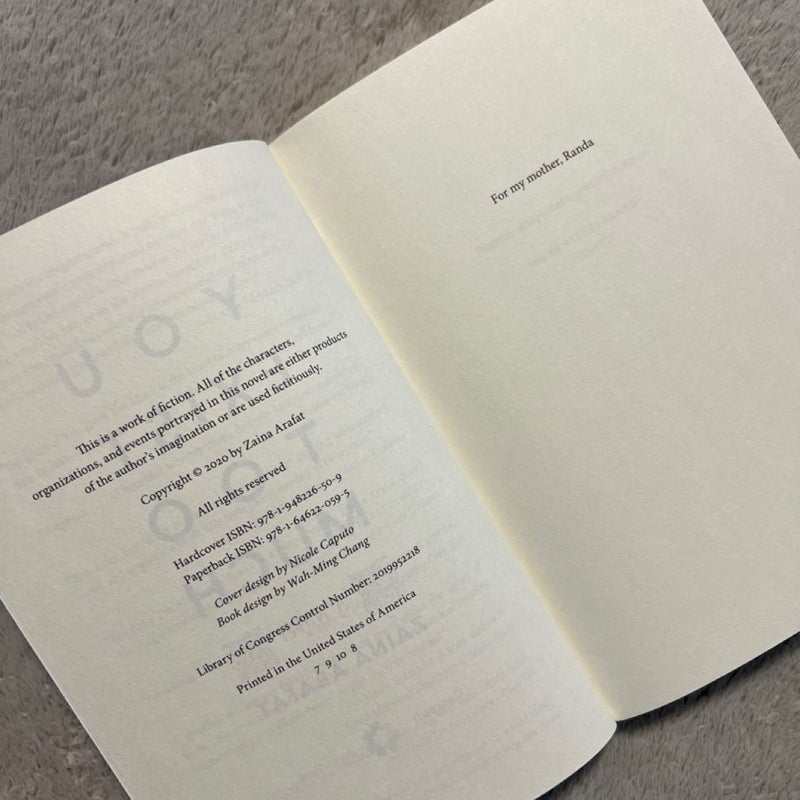 This is a work of fiction. All of the characters,
organizations, and events portrayed in this novel are either products
of the author's imagination or are used fictitiously.
Copyright © 2020 by Zaina Arafat
All rights reserved
Hardcover ISBN: 978-1-948226-50-9
Paperback ISBN: 978-1-64622-059-5
Cover design by Nicole Caputo
Book design by Wah-Ming Chang
Library of Congress Control Number: 2019952218
Printed in the United States of America
7 9 10 8
For my mother, Randa
YOU
TOO
MUCH
ZAINA ARAFAT